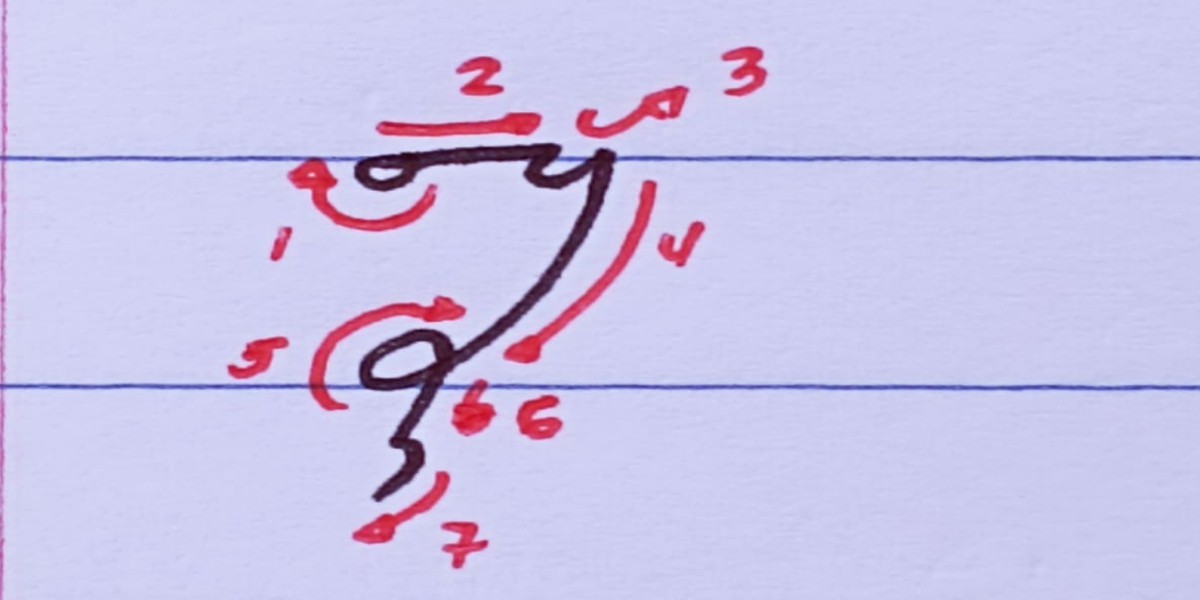 2 3
1 4
5
6
7